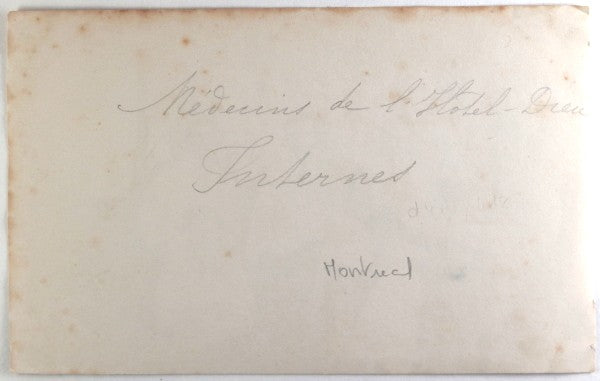 Médecins de l'Hotel-Dieu
Internes
Montreal